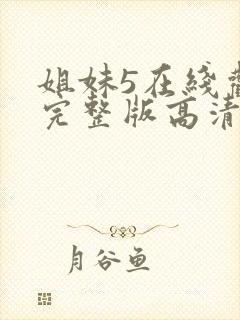 姐妹5在线
完整版高清
月谷鱼